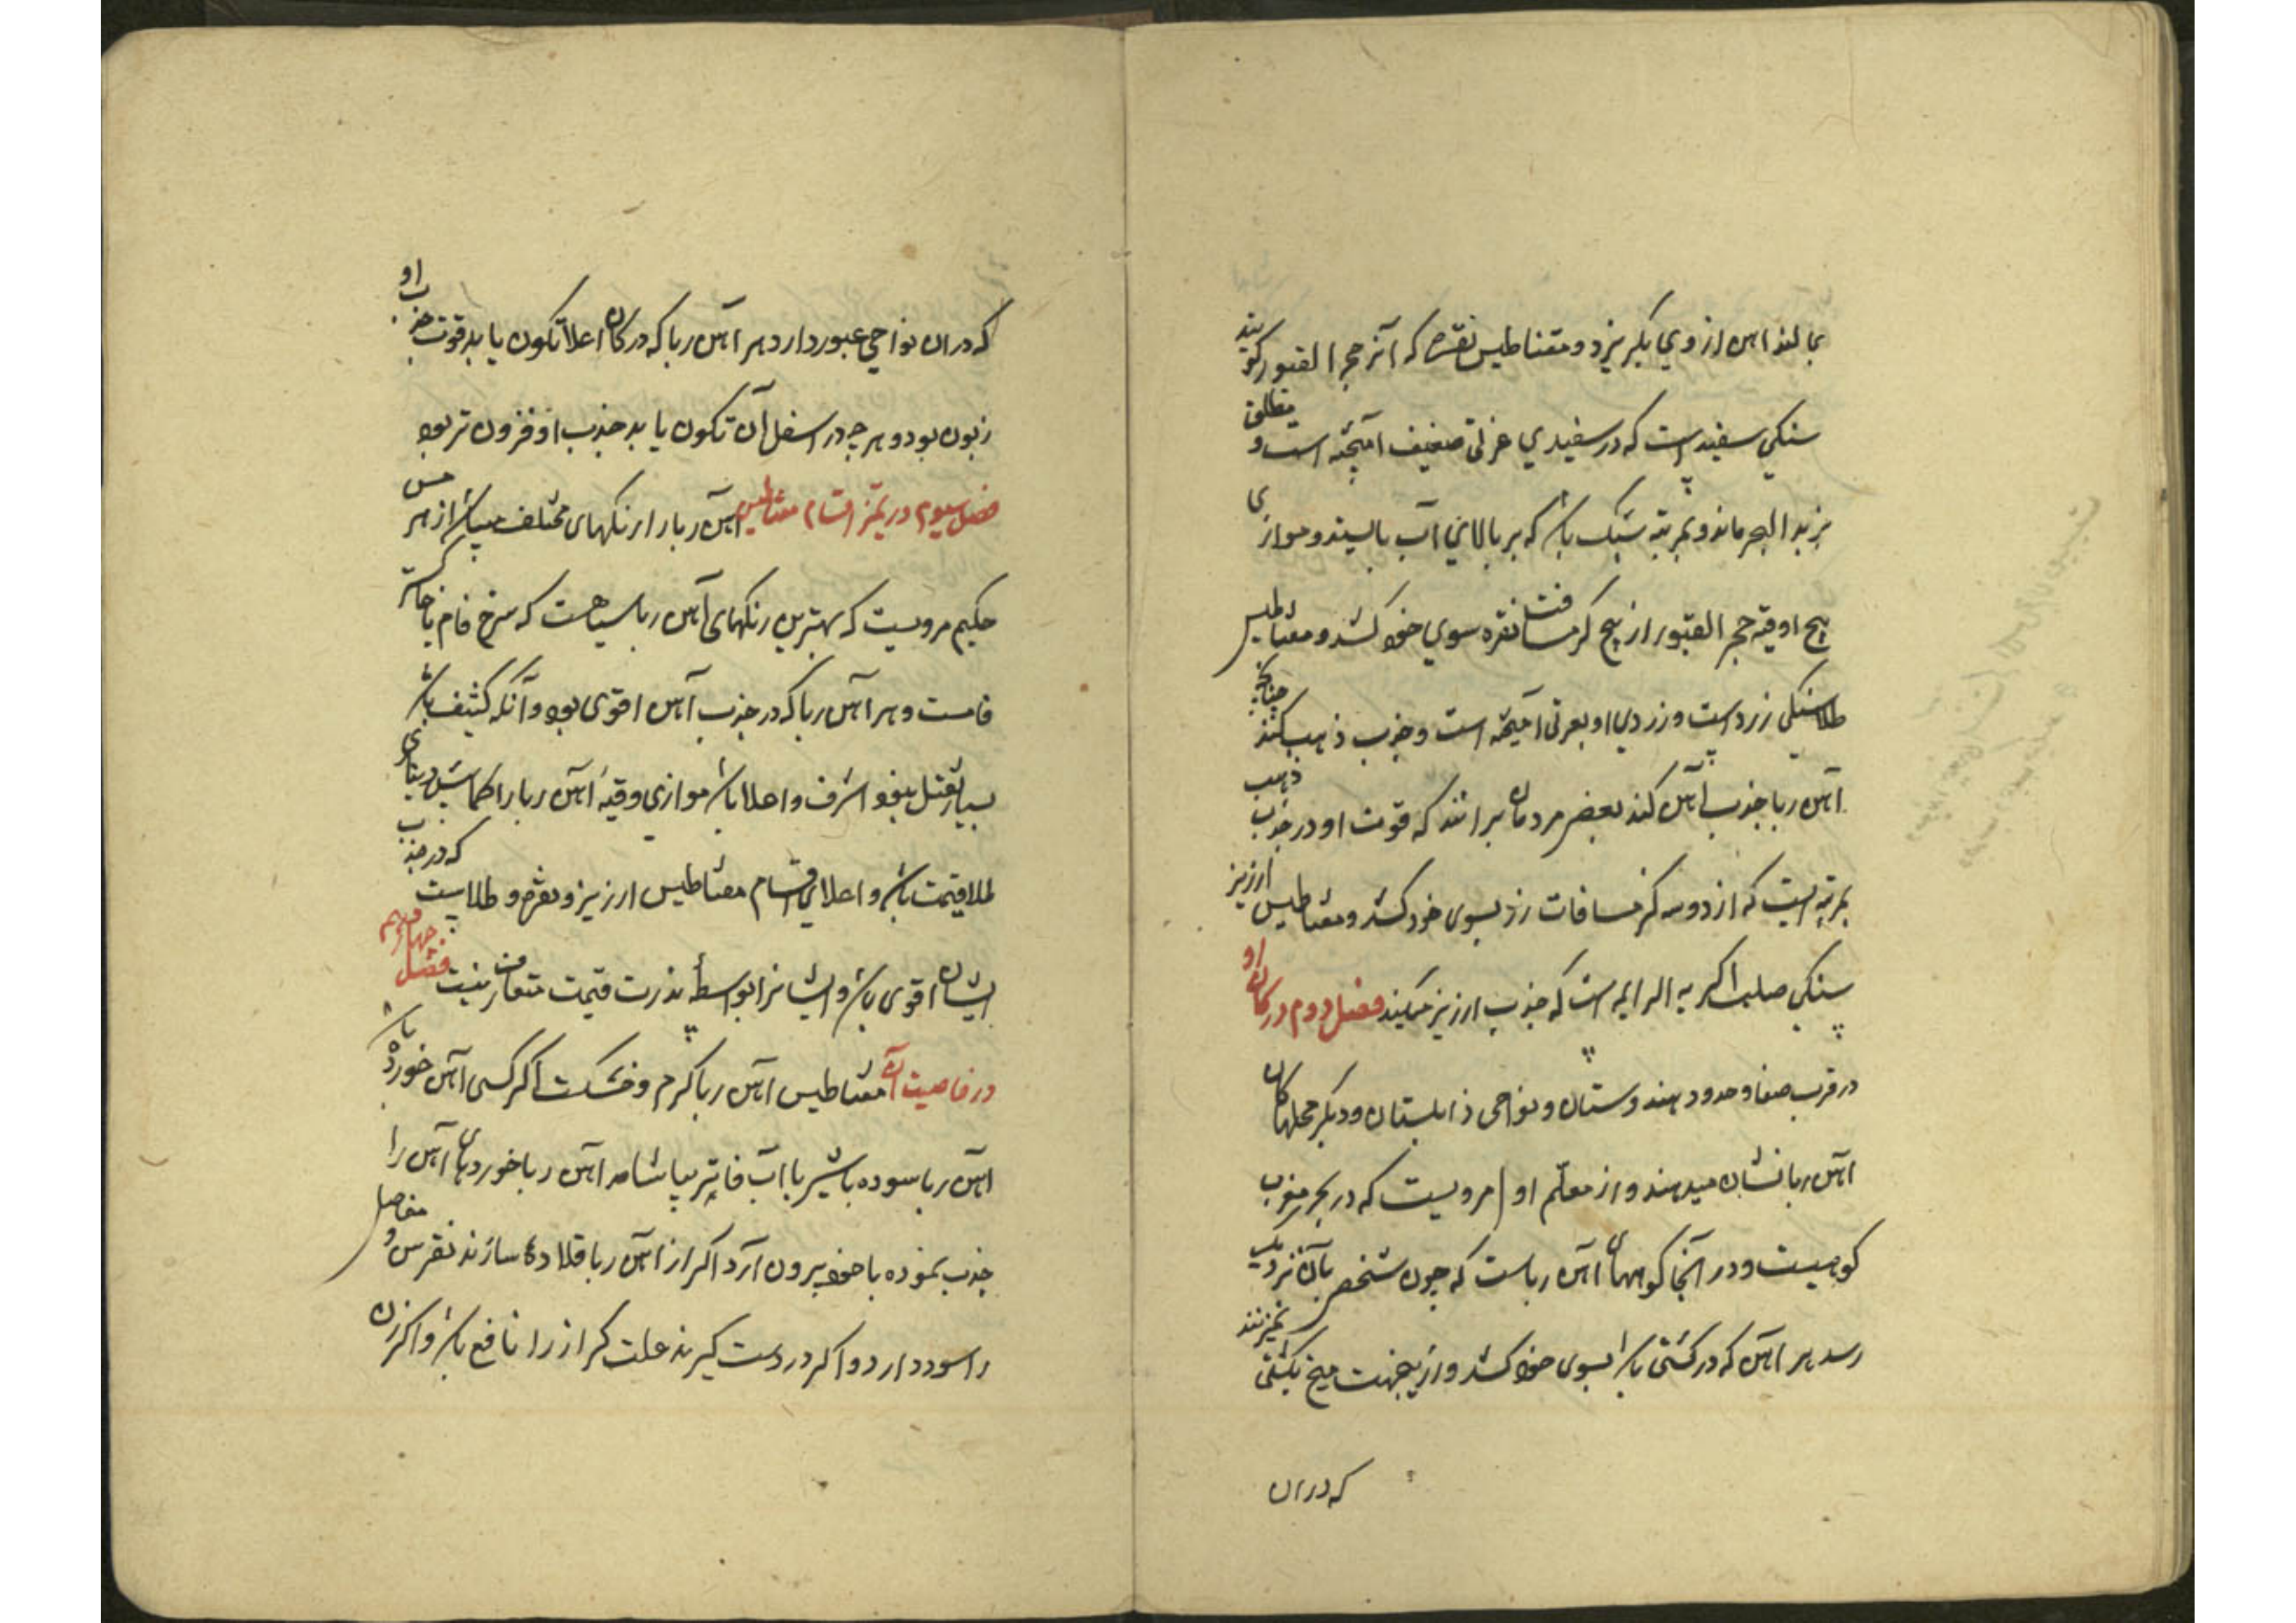 بمالند اهن از وي بگریزد و مقناطیس نقره که آنرا حجر القبور گویند
سنگي سفید است که در سفیدي عرقی ضعیف آمیخته است و
بزبد البحر ماند و بمرتبه سبک باشد که بر بالاي آب بایستد و موازی
پنج اوقیه حجر القبور از پنج گز مسافت نقره سوي خود کشد و مقناطیس
طلا سنگی زرد است و زردي او بعرقی آمیخته است و جذب ذهب کند چنانچه
آهن ربا جذب آهن کند بعضی مردمان برانند که قوت او در جذب ذهب
بمرتبه ایست که از دو سه گز مسافات زر بسوی خود کشد و مقناطیس ارزیز
سنگي صلب کریه الرایحه است که جذب ارزیز میکند فصل دوم در کان او
در قرب صنعا و حدود هندوستان و نواحی زابلستان و دیگر محلها کان
آهن ربا نشان میدهند و از معلم اول مرویست که در بحر مغرب
کوهیست و در آنجا کوههای آهن رباست که چون شخصی بآن نزدیک
رسد هر آهن که در کشتی باشد بسوی خود کشد و ازینجهت میخ بکشتی نمیزنند
که دران
که دران نواحي عبور دارد هر آهن ربا که در کان اعلا تکون یابد قوت جذب او
زبون بود و هر چه در اسفل آن تکون یابد جذب او فزون تر بود
فصل سیوم در تمیز اقسام مقناطیس آهن ربا را رنگهای مختلف میباشد از هرمس
حکیم مرویست که بهترین رنگهای آهن ربا سیاهست که سرخ فام یا
فامست و هر آهن ربا که در جذب آهن اقوی بود و آنکه کثیف باشد
بسیار ثقیل بود اشرف و اعلا باشد موازی وقیهٔ آهن ربا را
طلا قیمت باشد و اعلای اقسام مقناطیس ارزیز و نقره و طلا آنست که در جذب
ایشان اقوی باشد و ایشانرا بواسطهٔ ندرت قیمت متعارف نیست فصل چهارم
در خاصیت آن مقناطیس آهن ربا گرم و خشکست اگر کسی آهن خورده باشد
آهن ربا سوده با شیر یا آب فاتر بیاشامد آهن ربا خوردهای آهن را
جذب نموده با خود بیرون آرد اگر از آهن ربا قلادهٔ سازند نقرس و مفاصل
را سود دارد و اگر در دست گیرند علت کزاز را نافع باشد و اگر زن